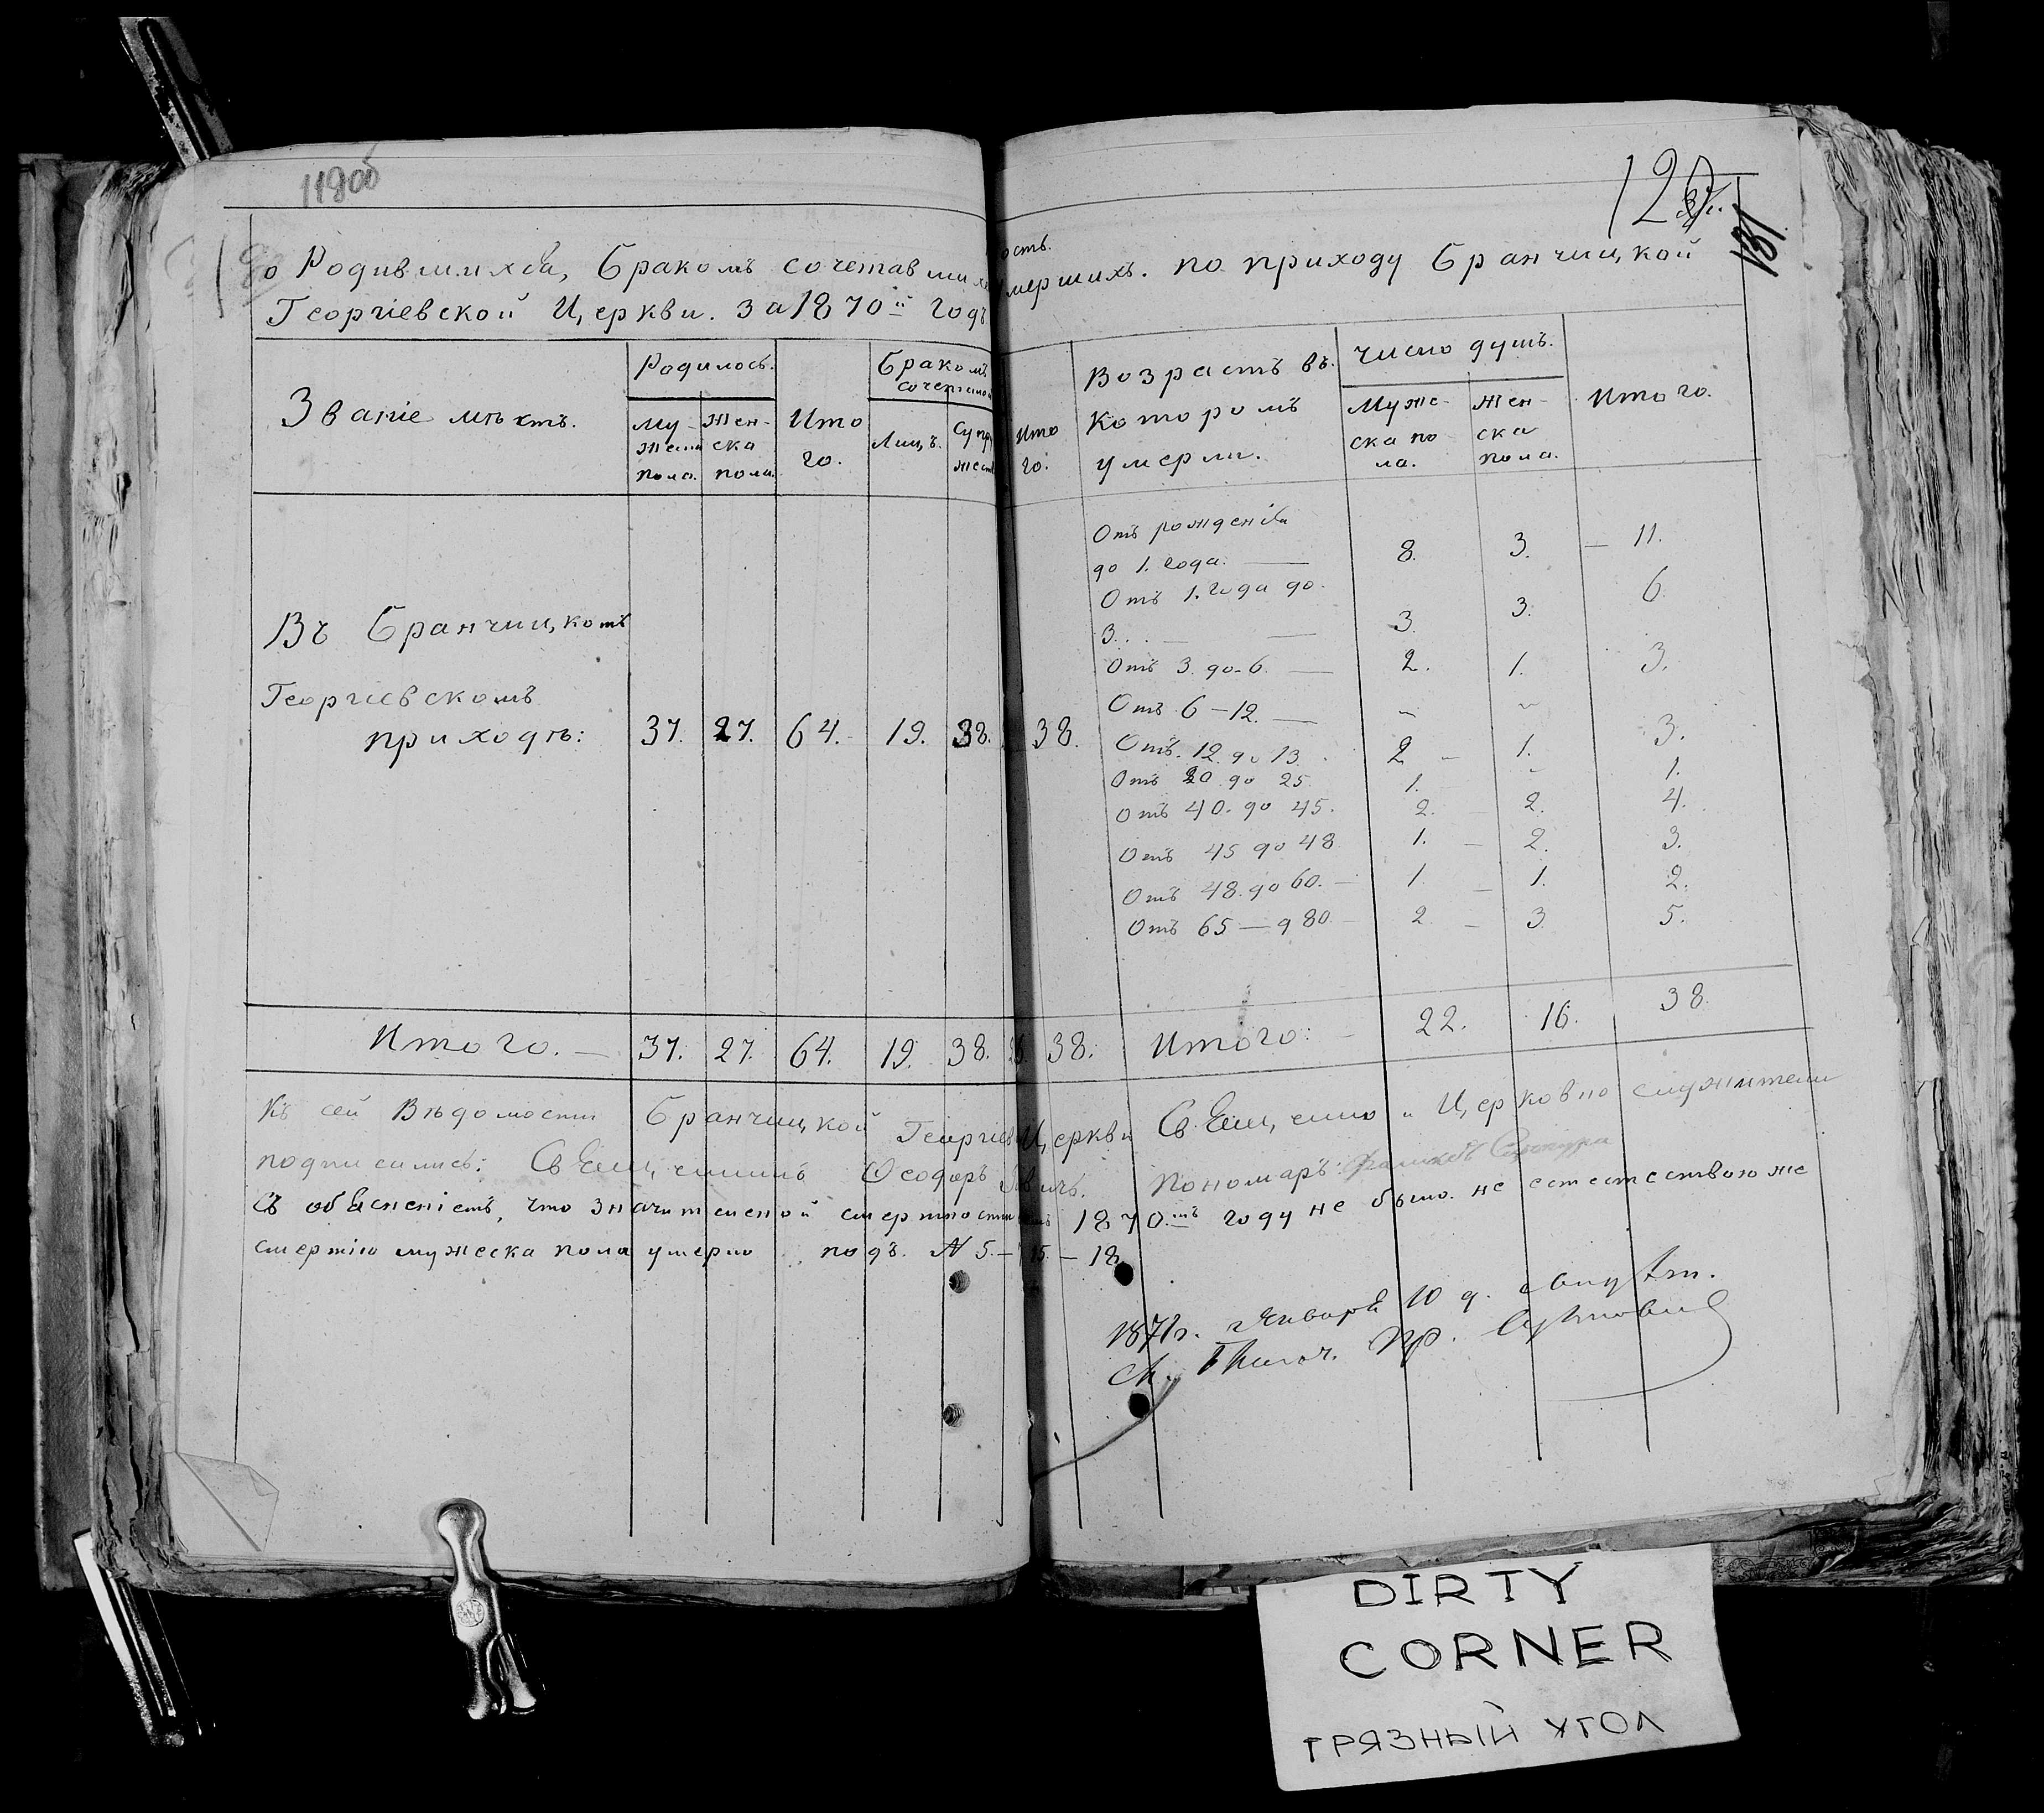 118об
120
131
о Родившихся, бракомъ сочетавшихся
Георгіевской Церкви. за 1870й Годъ
ость.
умершихъ. по приходу Бранчицкой
Званіе мѣстъ.
Родилось.
Му-
жеска
пола.
Жен-
ска
пола.
Ито
го.
Бракомъ
сочетало
Лицъ.
Супр
жест
Ито
го.
Возрастъ въ
Которомъ
умерли.
Число душъ.
Муже-
ска по
ла.
Жен-
ска
пола.
Итого.
Въ Бранчицкомъ
Георгіевскомъ
приходѣ: 37. 27. 64. 19. 38. 38.
Отъ рожденія
до 1. года. — 8. 3. — 11.
Отъ 1. года до
3. . — — 3. 3. 6.
Отъ 3. до 6. — 2. 1. 3.
Отъ 6 – 12. — „ „
Отъ. 12. до 13. 2 – 1. 3.
Отъ 20 до 25 1. – 1.
Отъ 40. до 45. 2. 2. 4.
Отъ 45 до 48 1. – 2. 3.
Отъ 48. до 60. – 1. – 1. 2.
Отъ 65 — д 80 – 2 – 3 5.
Итого. — 37. 27. 64. 19. 38. 38.
Итого: – 22. 16. 38.
Къ сей Вѣдомости Бранчицкой Георгіев Церкви Священно и Церковно служители
подписались: Священникъ Ѳеодоръ Пономаръ:
Съ объясненіемъ, что значительной смертности 1870.мъ году не было. не естественою же
смертію мужеска пола умерло подъ. N 5 – 15. – 18.
1871г. Января 10 д.
DIRTY
CORNER
ГРЯЗНЫЙ УГОЛ